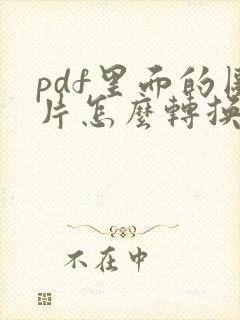 pdf里而的圖
片怎麼轉換
不在中